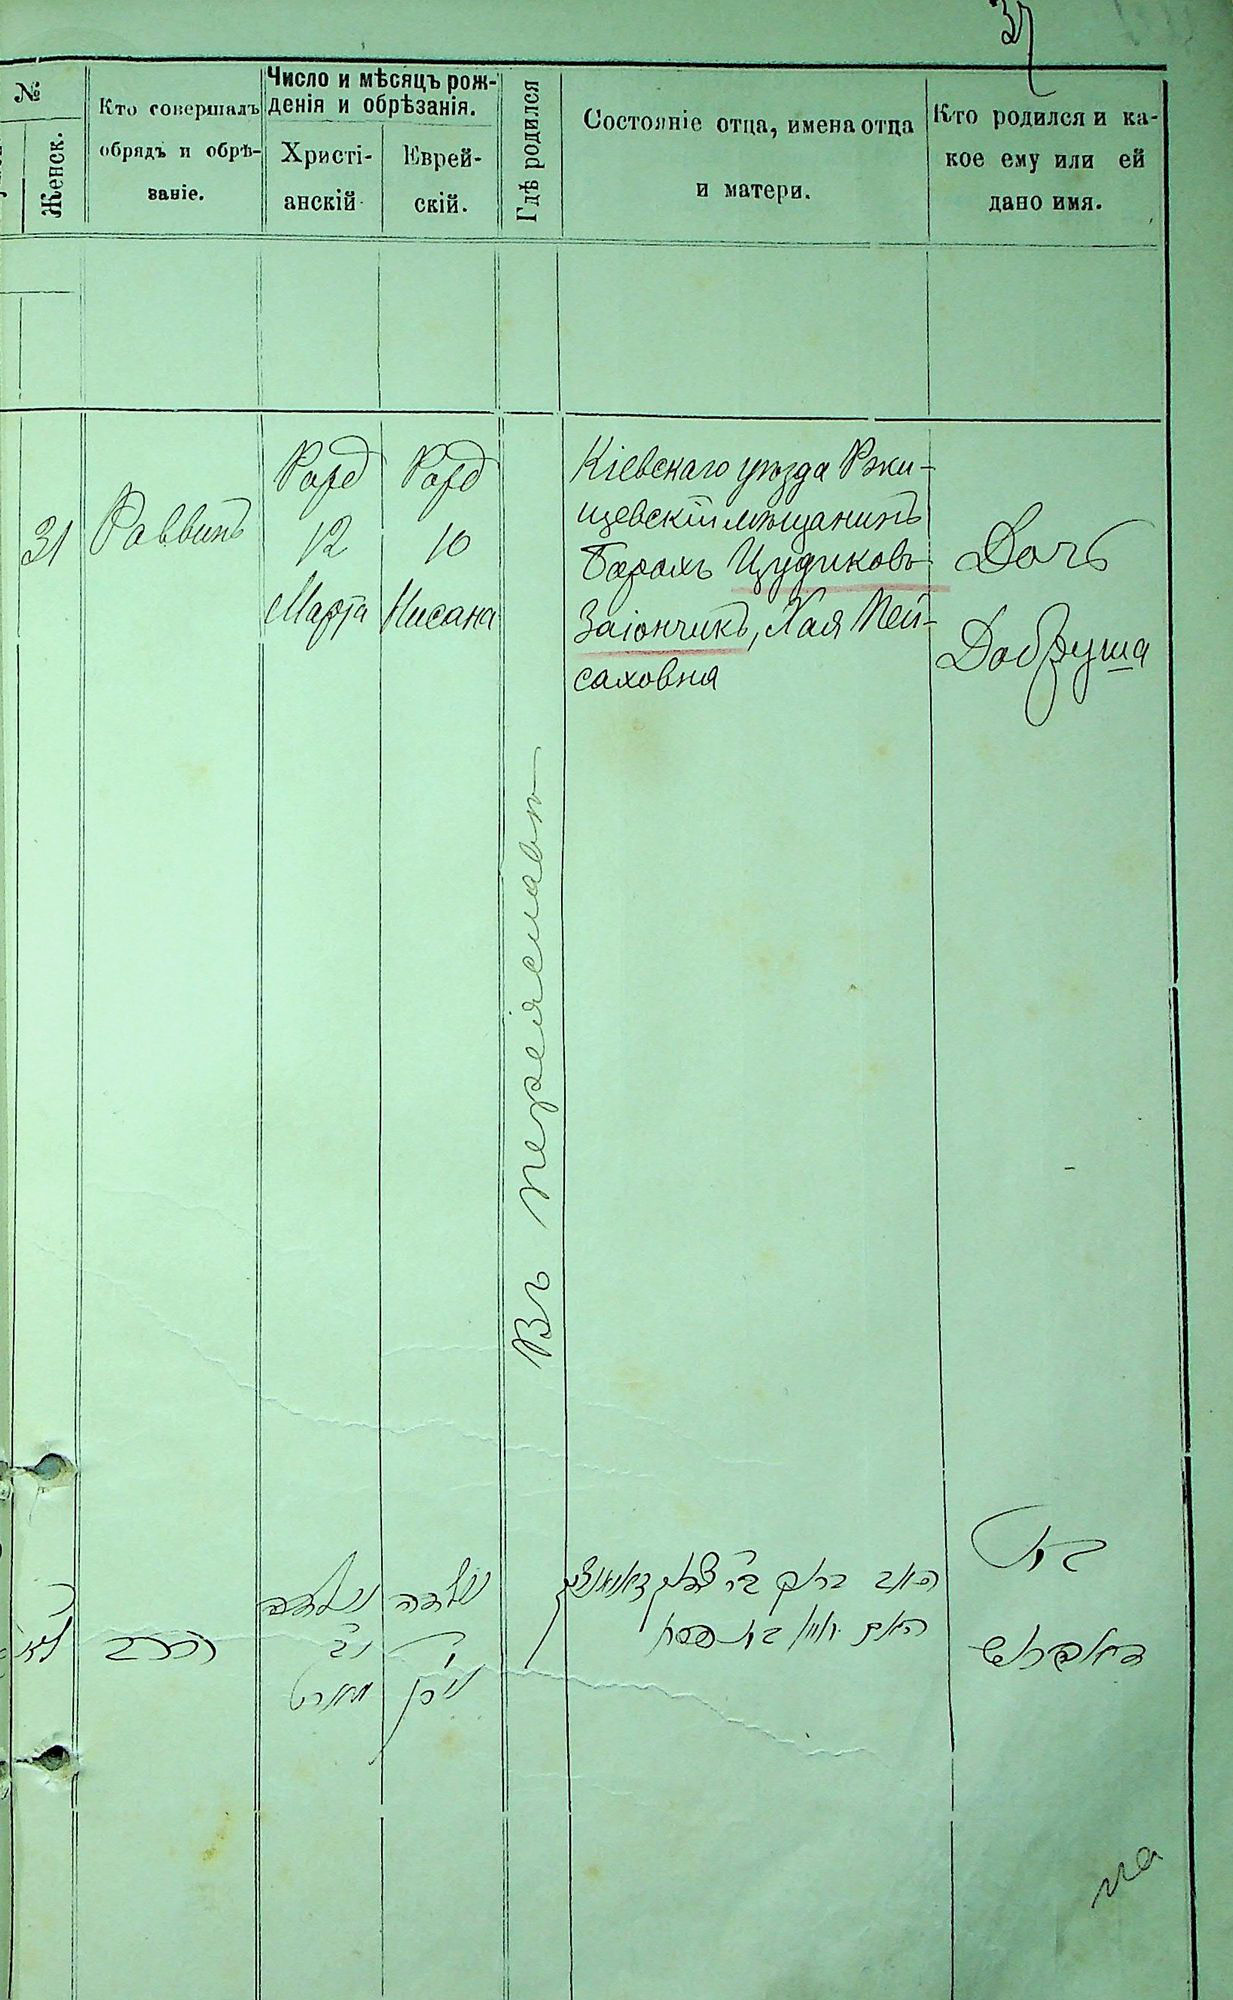 37
№
Женск.
Кто совершалъ
обрядъ и обрѣ-
заніе.
Число и мѣсяцъ рож-
денія и обрѣзанія.
Христі-
анскій
Еврей-
скій.
Гдѣ родился
Состояніе отца, имена отца
и матери.
Кто родился и ка-
кое ему или ей
дано имя.
31
Раввинъ
Рожд
12
Марта
Рожд
10
Нисана
Въ Переяславѣ
Кіевскаго уѣзда Ржи-
щевскій мѣщанинъ
Борохъ Цудиковъ
Заіончикъ, Хая Пей-
саховна
Дочь
Добруша
לא
הרב
נולדה
יב
מארט
נולדה
י
ניסן
האב ברוך בר
האם חיי׳ בת פסח
בת
דאברוש